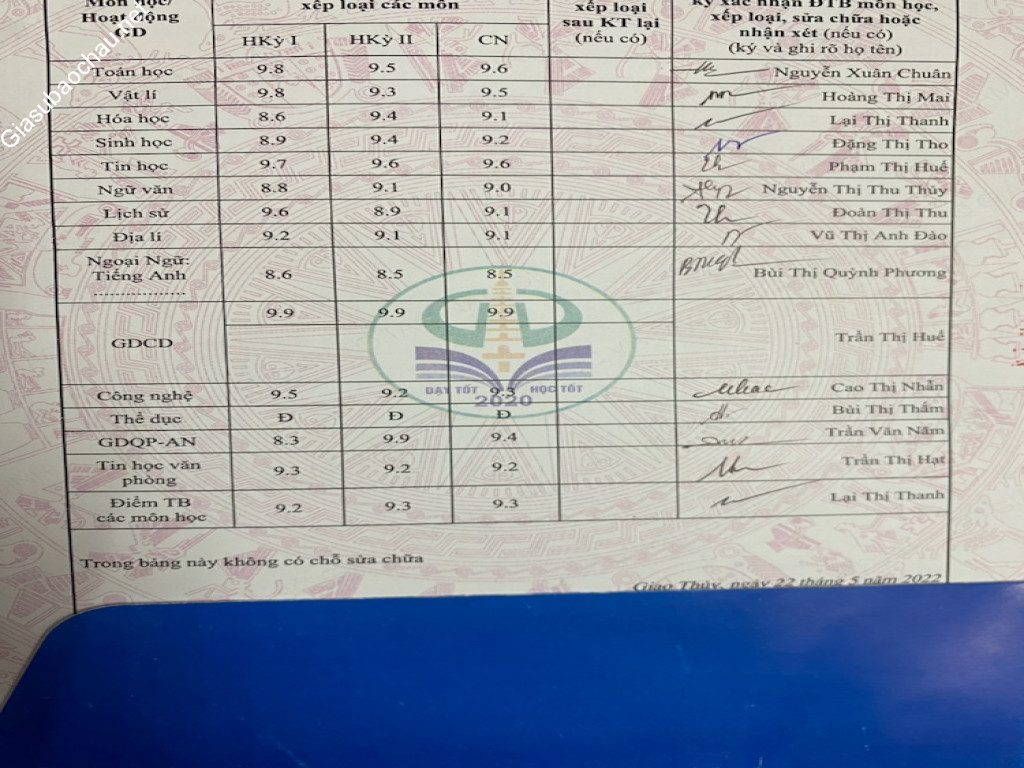 Môn học/ xếp loại các môn xếp loại ký xác nhận ĐTB môn học,
Hoạt động sau KT lại xếp loại, sửa chữa hoặc
GD HKỳ I HKỳ II CN (nếu có) nhận xét (nếu có)
(ký và ghi rõ họ tên)
Toán học 9.8 9.5 9.6 Nguyễn Xuân Chuân
Vật lí 9.8 9.3 9.5 Hoàng Thị Mai
Hóa học 8.6 9.4 9.1 Lại Thị Thanh
Sinh học 8.9 9.4 9.2 Đặng Thị Tho
Tin học 9.7 9.6 9.6 Phạm Thị Huế
Ngữ văn 8.8 9.1 9.0 Nguyễn Thị Thu Thủy
Lịch sử 9.6 8.9 9.1 Đoàn Thị Thu
Địa lí 9.2 9.1 9.1 Vũ Thị Anh Đào
Ngoại Ngữ:
Tiếng Anh 8.6 8.5 8.5 Bùi Thị Quỳnh Phương
..................
9.9 9.9 9.9
GDCD Trần Thị Huế
Công nghệ 9.5 9.2 9.3 Cao Thị Nhẫn
DẠY TỐT HỌC TỐT
2020
Thể dục Đ Đ Đ Bùi Thị Thắm
GDQP-AN 8.3 9.9 9.4 Trần Văn Năm
Tin học văn
phòng 9.3 9.2 9.2 Trần Thị Hạt
Điểm TB
các môn học 9.2 9.3 9.3 Lại Thị Thanh
Trong bảng này không có chỗ sửa chữa
Giao Thủy, ngày 22 tháng 5 năm 2022